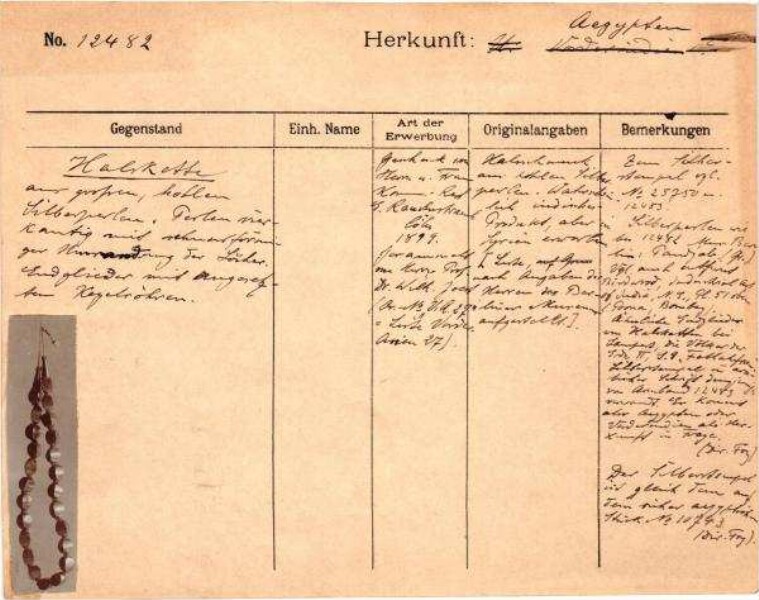 No. 12482
Herkunft:
Aegypten
Vorderindien
Gegenstand
Einh. Name
Art der Erwerbung
Originalangaben
Bemerkungen
Halskette
aus großen, hohlen
Silberperlen. Perlen vier-
kantig mit schnurförmi-
ger Umrandung der Löcher.
Endglieder mit angesetz-
ten Kegelröhren.
Geschenk von
Herrn u. Frau
E. Rautenstrauch
Cöln
1899.
Gesammelt
von Herrn Prof.
Dr. Wilh. Joest
= Liste Vorder-
Asien 27).
Halsschmuck
aus hohlen Silber-
perlen. Wahrschein-
lich indisches
Produkt, aber in
Syrien erworben
[Liste, auf Grund
nach Angaben der
Herren des Ber-
liner Museums
aufgestellt].
Zum Silber-
stempel vgl.
No 25750 u.
12483.
Silberperlen wie
bei 12482
Vgl. auch
Aehnliche Endglieder
an Halsketten bei
die Völker der
Silberstempel in ara-
bischer Schrift
Armband 12483
verwandt. Es kommt
also Aegypten oder
Vorderindien als Her-
kunft in Frage.
(Dir. Foy)
Der Silberstempel
ist gleich dem auf
dem sicher aegyptischen
Stück No 10743
(Dir. Foy).